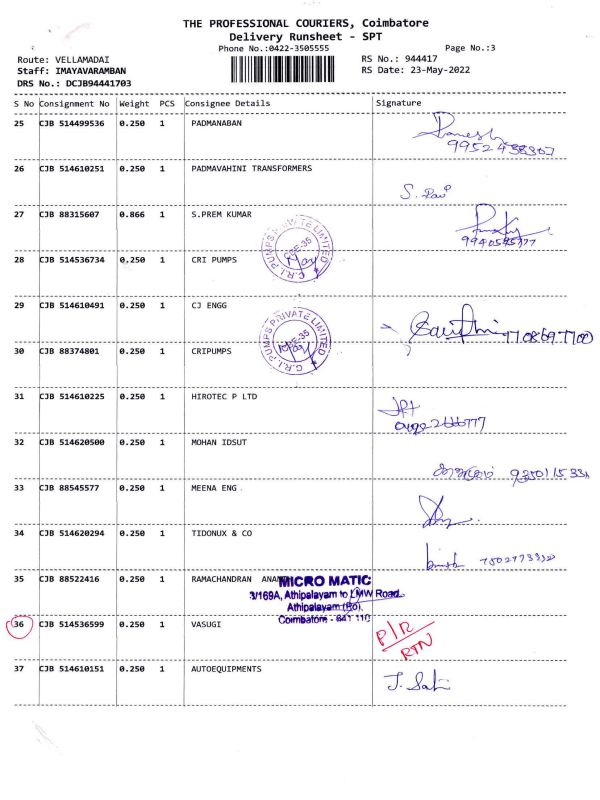 THE PROFESSIONAL COURIERS, Coimbatore
Delivery Runsheet - SPT
Phone No.:0422-3505555
Page No.:3
Route: VELLAMADAI
RS No.: 944417
Staff: IMAYAVARAMBAN
RS Date: 23-May-2022
DRS No.: DCJB94441703
S No Consignment No Weight PCS Consignee Details Signature
25 CJB 514499536 0.250 1 PADMANABAN
26 CJB 514610251 0.250 1 PADMAVAHINI TRANSFORMERS
27 CJB 88315607 0.866 1 S.PREM KUMAR
28 CJB 514536734 0,250 1 CRI PUMPS
C.R.I. PUMPS PRIVATE LIMITED
CBE-35
29 CJB 514610491 0.250 1 CJ ENGG
C.R.I. PUMPS PRIVATE LIMITED
CBE-35
30 CJB 88374801 0.250 1 CRIPUMPS
31 CJB 514610225 0.250 1 HIROTEC P LTD
32 CJB 514620500 0.250 1 MOHAN IDSUT
33 CJB 88545577 0.250 1 MEENA ENG
34 CJB 514620294 0.250 1 TIDONUX & CO
35 CJB 88522416 0.250 1 RAMACHANDRAN
MICRO MATIC
3/169A, Athipalayam to LMW Road,
Athipalayam (Po),
Coimbatore - 641 110
36 CJB 514536599 0.250 1 VASUGI P/R
RTN
37 CJB 514610151 0.250 1 AUTOEQUIPMENTS